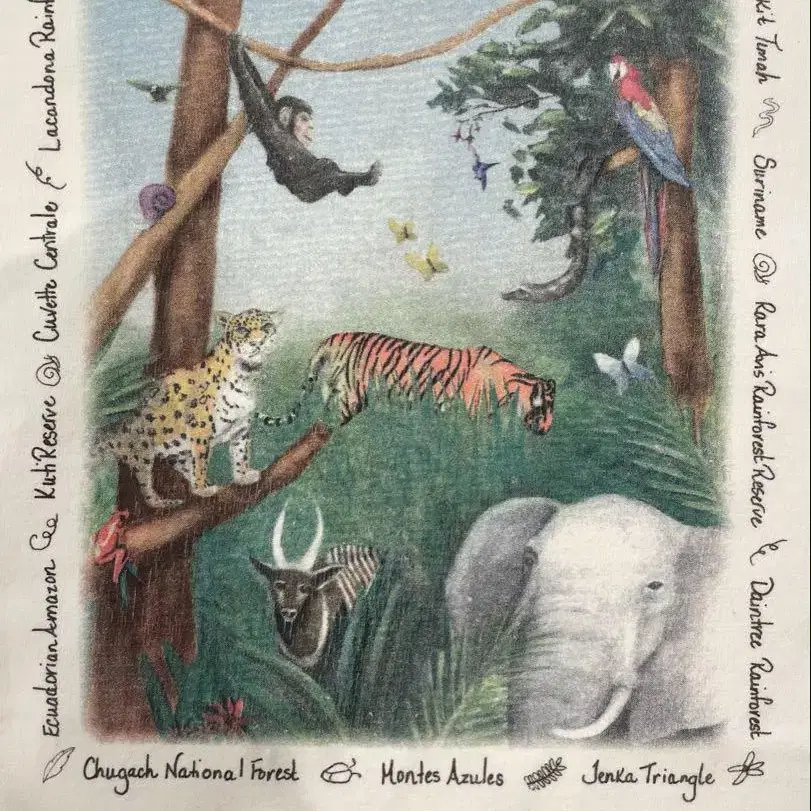 Ecuadorian Amazon Kuti Reserve Cuvette Centrale Lacandona
Timah Suriname Rara Avis Rainforest Reserve Daintree Rainforest
Chugach National Forest Montes Azules Jenka Triangle